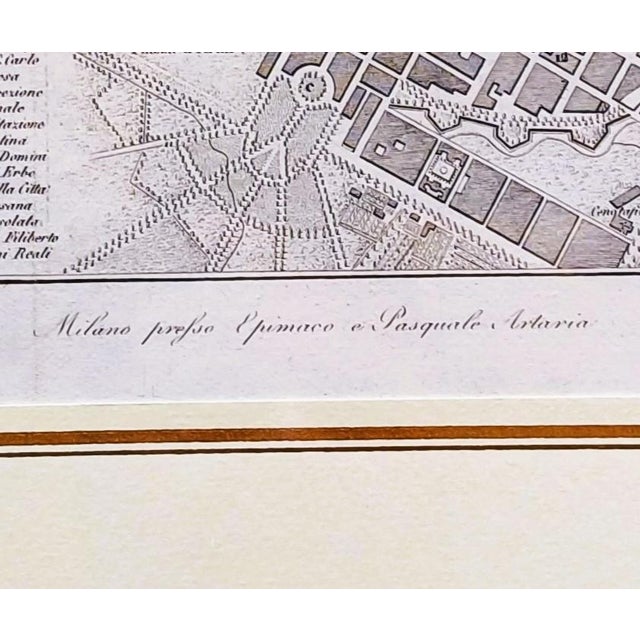 S. Carlo
ezione
nale
tazione
tina
Domini
Erbe
lla Città
sana
solata
Filiberto
ni Reali
12
Milano presso Epimaco e Pasquale Artaria